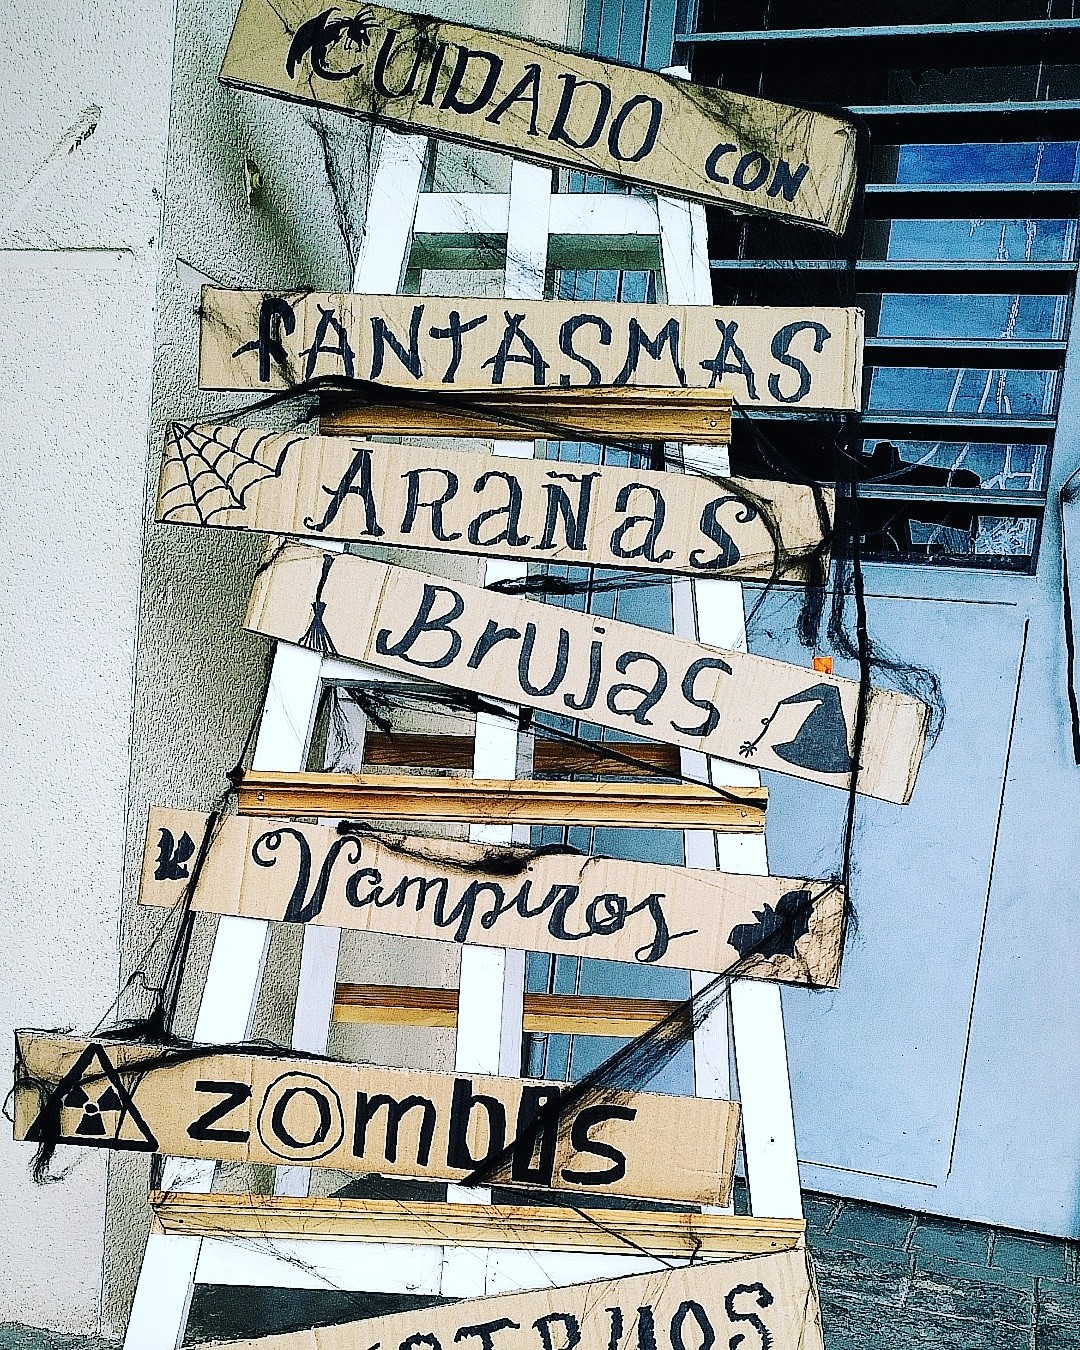 CUIDADO CON
FANTASMAS
ARaÑas
BrUjas
Vampiros
zombis